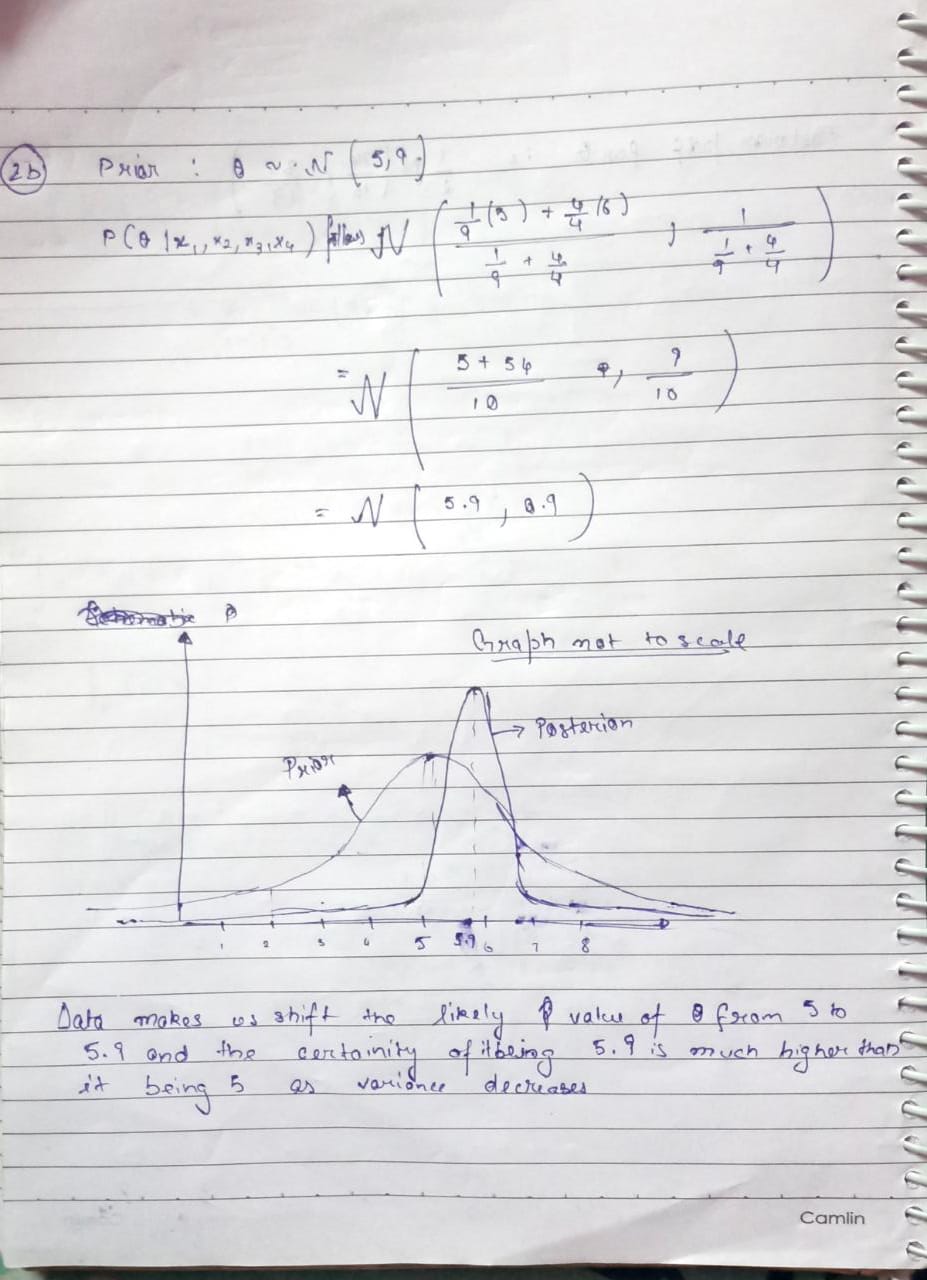 2b Prior : θ ~ N (5,9)
P(θ | x₁, x₂, x₃, x₄) follows N ( (1/9 (5) + 4/4 (6)) / (1/9 + 4/4) , 1 / (1/9 + 4/4) )
= N ( (5 + 54) / 10 , 9/10 )
= N ( 5.9 , 0.9 )
Graph not to scale
Prior
Posterior
1 2 3 4 5 5.9 6 7 8
Data makes us shift the likely value of θ from 5 to
5.9 and the certainity of it being 5.9 is much higher than
it being 5 as variance decreases
Camlin